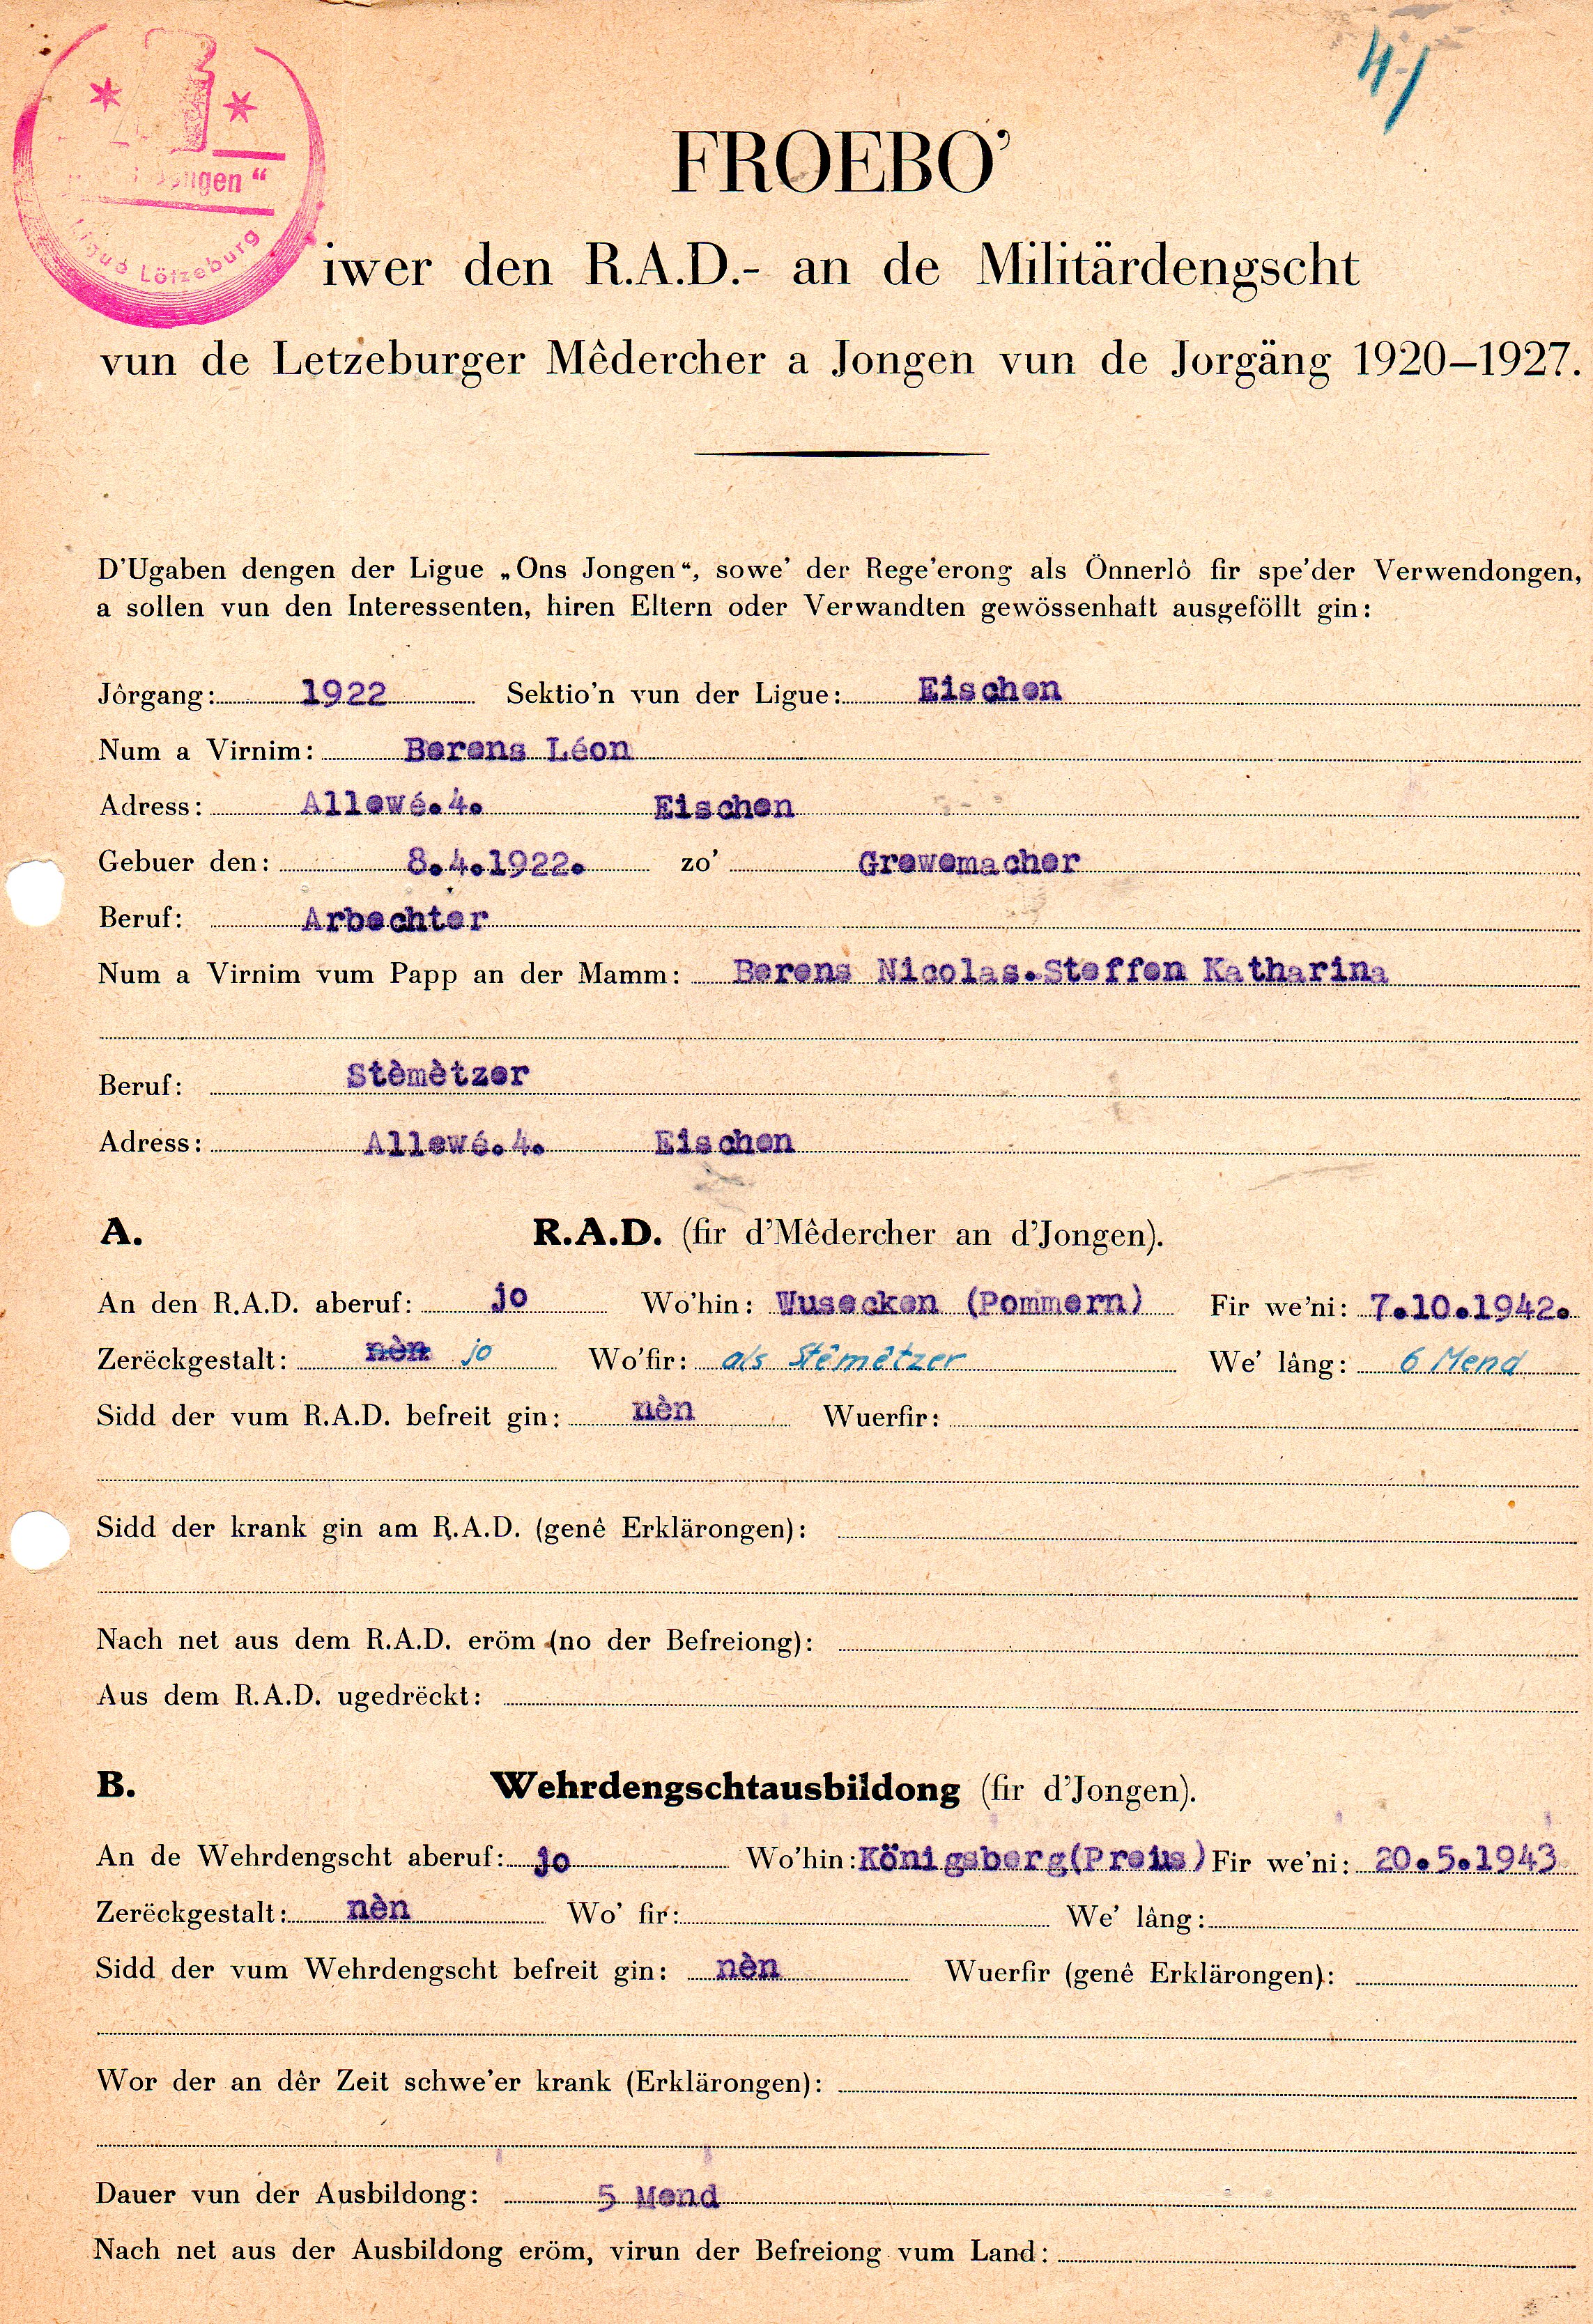 41
Jongen“
Ligue Lötzeburg
FROEBO’
iwer den R.A.D.- an de Militärdengscht
vun de Letzeburger Mêdercher a Jongen vun de Jorgäng 1920–1927.
D’Ugaben dengen der Ligue „Ons Jongen“, sowe’ der Rege’erong als Önnerlô fir spe’der Verwendongen,
a sollen vun den Interessenten, hiren Eltern oder Verwandten gewössenhaft ausgeföllt gin:
Jôrgang: 1922 Sektio’n vun der Ligue: Eischen
Num a Virnim: Berens Léon
Adress: Allewé.4. Eischen
Gebuer den: 8.4.1922. zo’ Grewemacher
Beruf: Arbechter
Num a Virnim vum Papp an der Mamm: Berens Nicolas.Steffen Katharina
Beruf: Stèmètzer
Adress: Allewé.4. Eischen
A. R.A.D. (fir d’Mêdercher an d’Jongen).
An den R.A.D. aberuf: jo Wo’hin: Wusecken (Pommern) Fir we’ni: 7.10.1942.
Zerëckgestalt: nèn jo Wo’fir: als Stêmêtzer We’ lâng: 6 Mend
Sidd der vum R.A.D. befreit gin: nèn Wuerfir:
Sidd der krank gin am R.A.D. (genê Erklärongen):
Nach net aus dem R.A.D. eröm (no der Befreiong):
Aus dem R.A.D. ugedrëckt:
B. Wehrdengschtausbildong (fir d’Jongen).
An de Wehrdengscht aberuf: jo Wo’hin: Königsberg(Preius) Fir we’ni: 20.5.1943
Zerëckgestalt: nèn Wo’ fir: We’ lâng:
Sidd der vum Wehrdengscht befreit gin: nèn Wuerfir (genê Erklärongen):
Wor der an dêr Zeit schwe’er krank (Erklärongen):
Dauer vun der Ausbildong: 5 Mend
Nach net aus der Ausbildong eröm, virun der Befreiong vum Land: